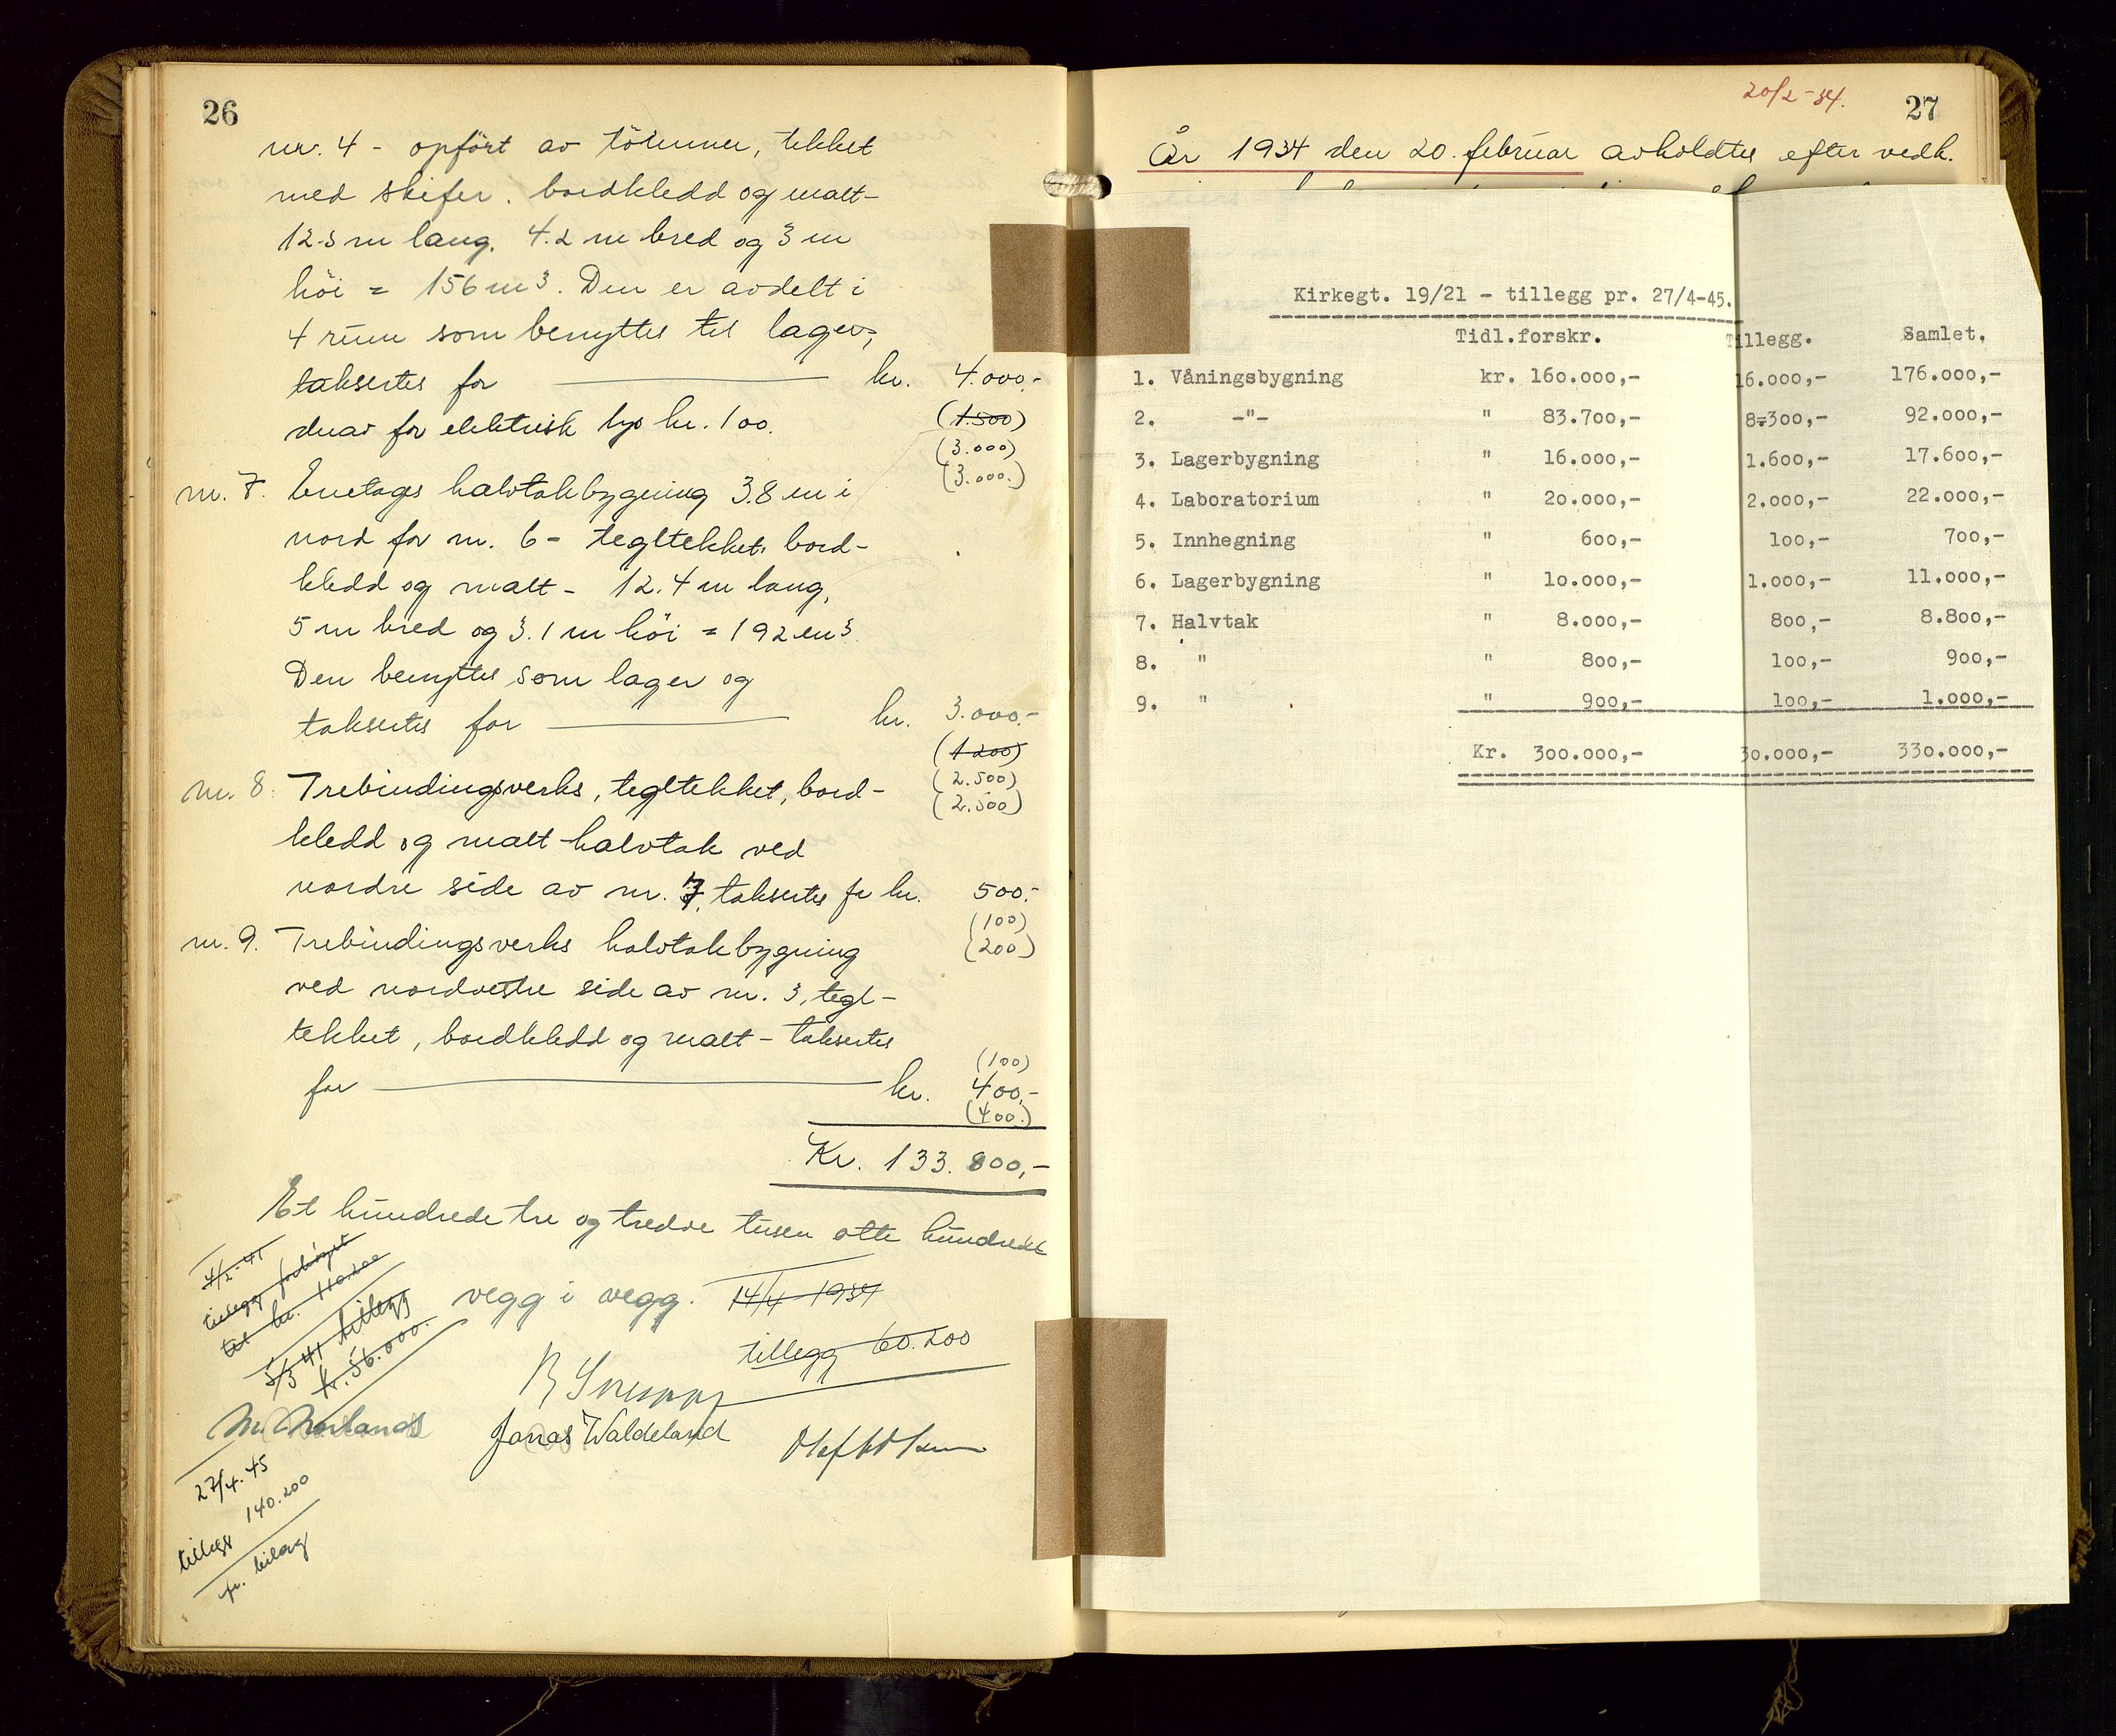 26
nr. 4 - opført av tømmer, tekket
med skifer. bordkledd og malt-
12.3 m lang. 4.2 m bred og 3 m
höi = 156 m3. Den er avdelt i
4 rum som benyttes til lager,
taksertes for kr. 4.000.-
derav for elektrisk lys kr. 100. (1.500)
(3.000)
(3.000.)
nr. 7. Enetages halvtakbygning 3.8 m i
nord for nr. 6 - tegltekket, bord-
kledd og malt - 12.4 m lang,
5 m bred og 3.1 m höi = 192 m3.
Den benyttes som lager og
taksertes for kr. 3.000.-
(1200)
(2.500)
(2.500)
nr. 8. Trebindingsverks, tegltekket, bord-
kledd og malt halvtak ved
nordre side av nr. 7, taksertes for kr. 500.-
(100)
(200)
nr. 9. Trebindingsverks halvtakbygning
ved nordvestre side av nr. 3, tegl-
tekket, bordkledd og malt - taksertes
(100)
for kr. 400,-
(400.)
Kr. 133.800,-
Et hundrede tre og tredve tusen otte hundrede
4/2-41
tillegg forhöiet
til kr. 110.200
5/3 41 tillegg
kr. 56.000.
vegg i vegg.
14/4 1939
tillegg 60.200
Jonas Waldeland
27/4.45
tillegg 140.200
pr. bilag
20/2-34.
27
År 1934 den 20. februar avholdtes efter vedk.
Kirkegt. 19/21 - tillegg pr. 27/4-45.
Tidl.forskr. Tillegg. Samlet.
1. Våningsbygning kr. 160.000,- 16.000,- 176.000,-
2. -"- " 83.700,- 8.300,- 92.000,-
3. Lagerbygning " 16.000,- 1.600,- 17.600,-
4. Laboratorium " 20.000,- 2.000,- 22.000,-
5. Innhegning " 600,- 100,- 700,-
6. Lagerbygning " 10.000,- 1.000,- 11.000,-
7. Halvtak " 8.000,- 800,- 8.800,-
8. " " 800,- 100,- 900,-
9. " " 900,- 100,- 1.000,-
Kr. 300.000,- 30.000,- 330.000,-